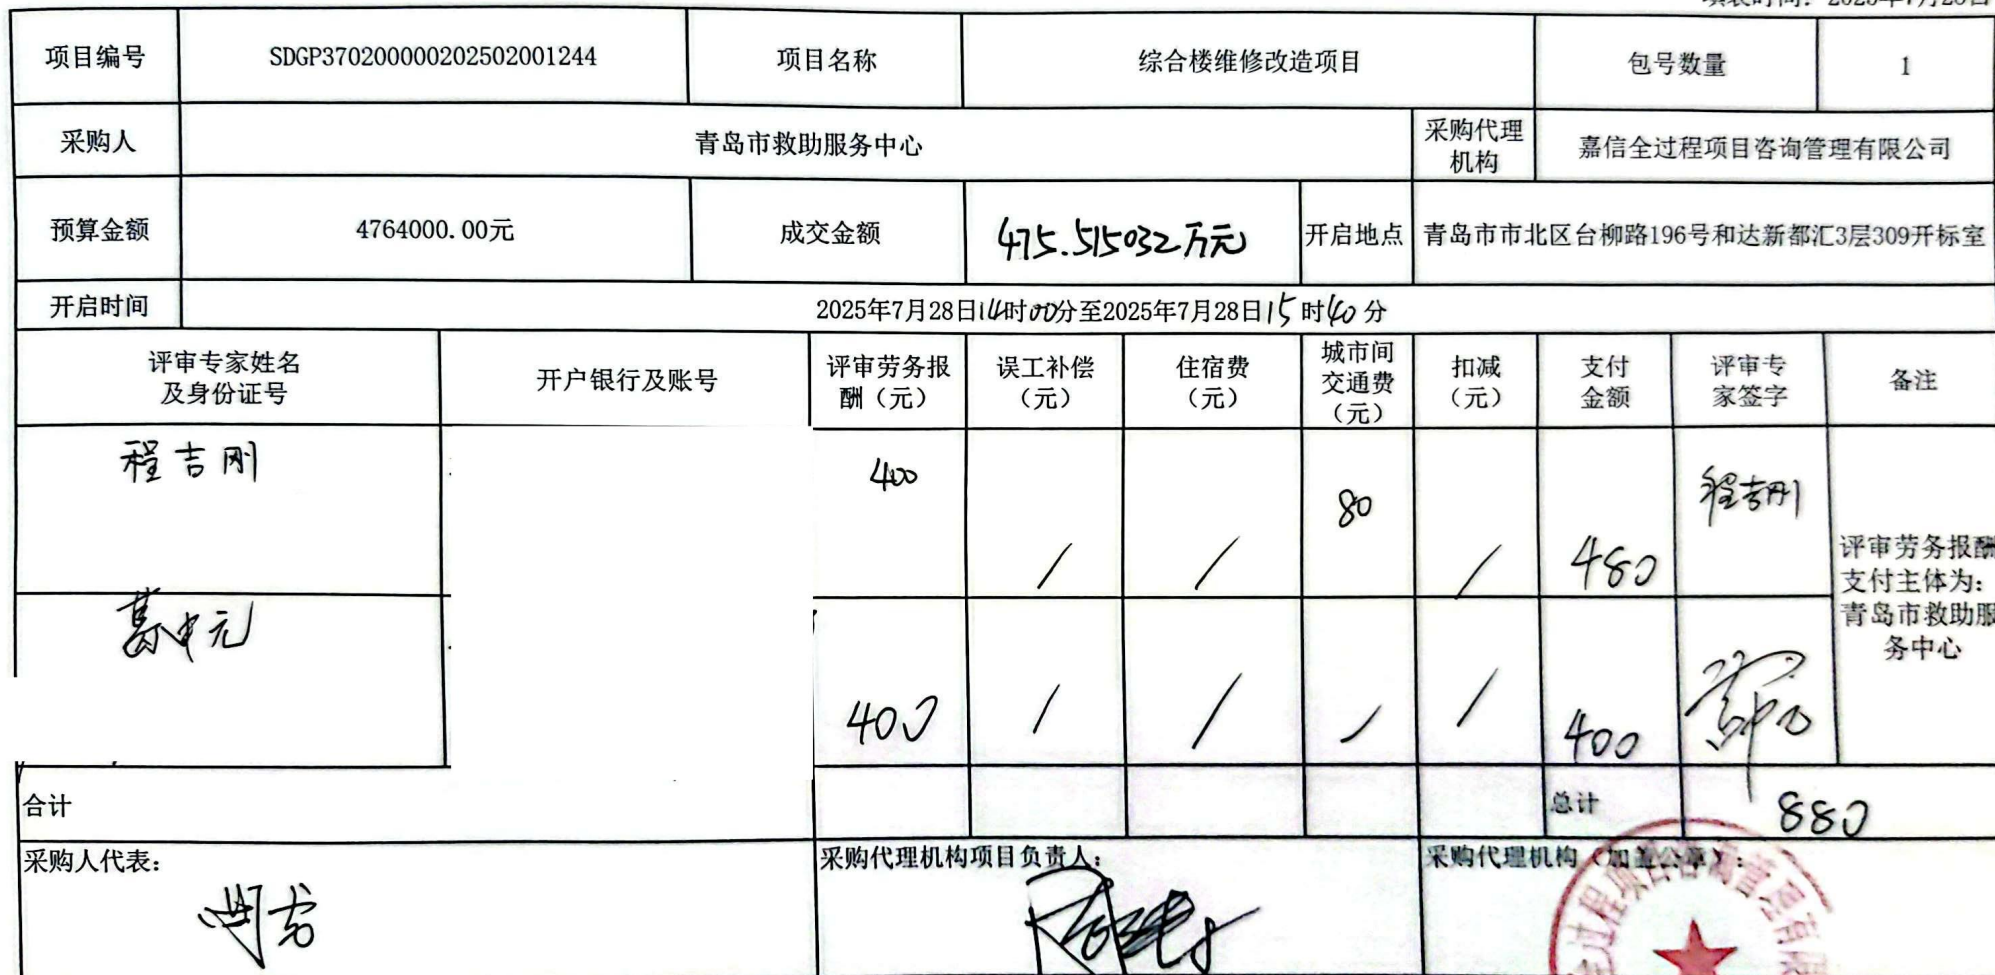 填表时间：2025年7月28日
项目编号 SDGP370200000202502001244 项目名称 综合楼维修改造项目 包号数量 1
采购人 青岛市救助服务中心 采购代理机构 嘉信全过程项目咨询管理有限公司
预算金额 4764000.00元 成交金额 475.515032万元 开启地点 青岛市市北区台柳路196号和达新都汇3层309开标室
开启时间 2025年7月28日14时00分至2025年7月28日15时40分
评审专家姓名及身份证号 开户银行及账号 评审劳务报酬（元） 误工补偿（元） 住宿费（元） 城市间交通费（元） 扣减（元） 支付金额 评审专家签字 备注
程吉刚 400 / / 80 / 480 程吉刚
评审劳务报酬
支付主体为：
青岛市救助服
务中心
葛中元 400 / / / / 400 葛中元
合计 总计 880
采购人代表： 采购代理机构项目负责人： 采购代理机构（加盖公章）：
全过程项目咨询管理有限